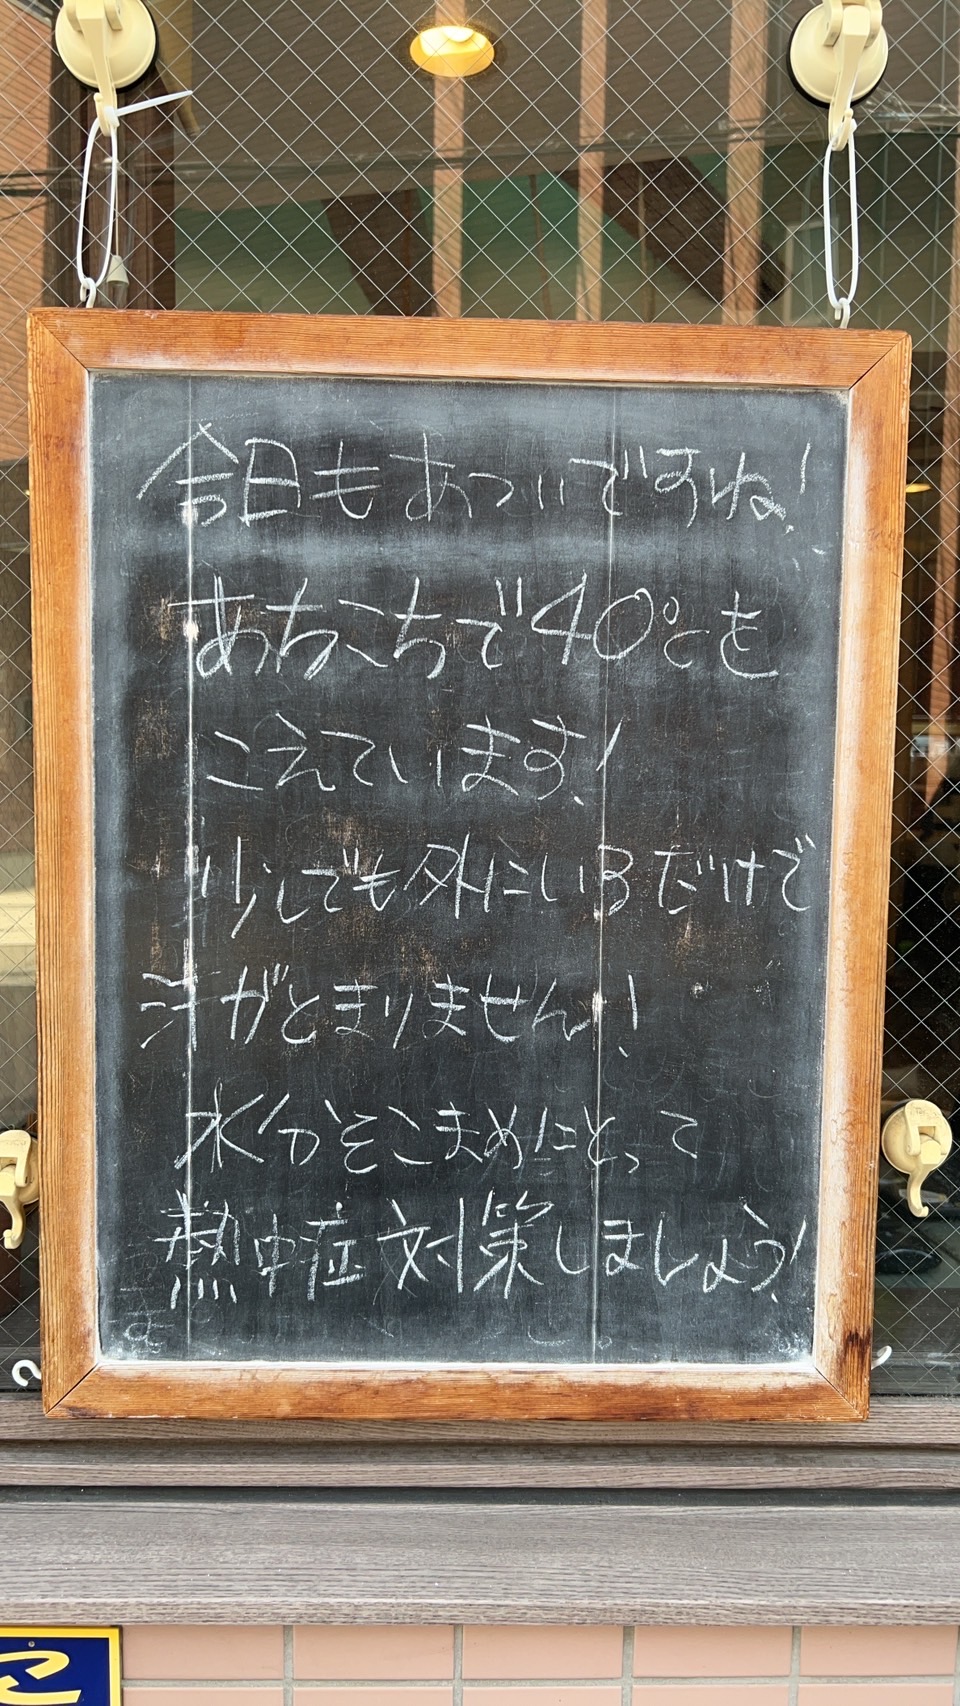 今日もあついですね!
あちこちで40℃を
こえています!
少しでも外にいるだけで
汗がとまりません!
水分をこまめにとって
熱中症対策しましょう!